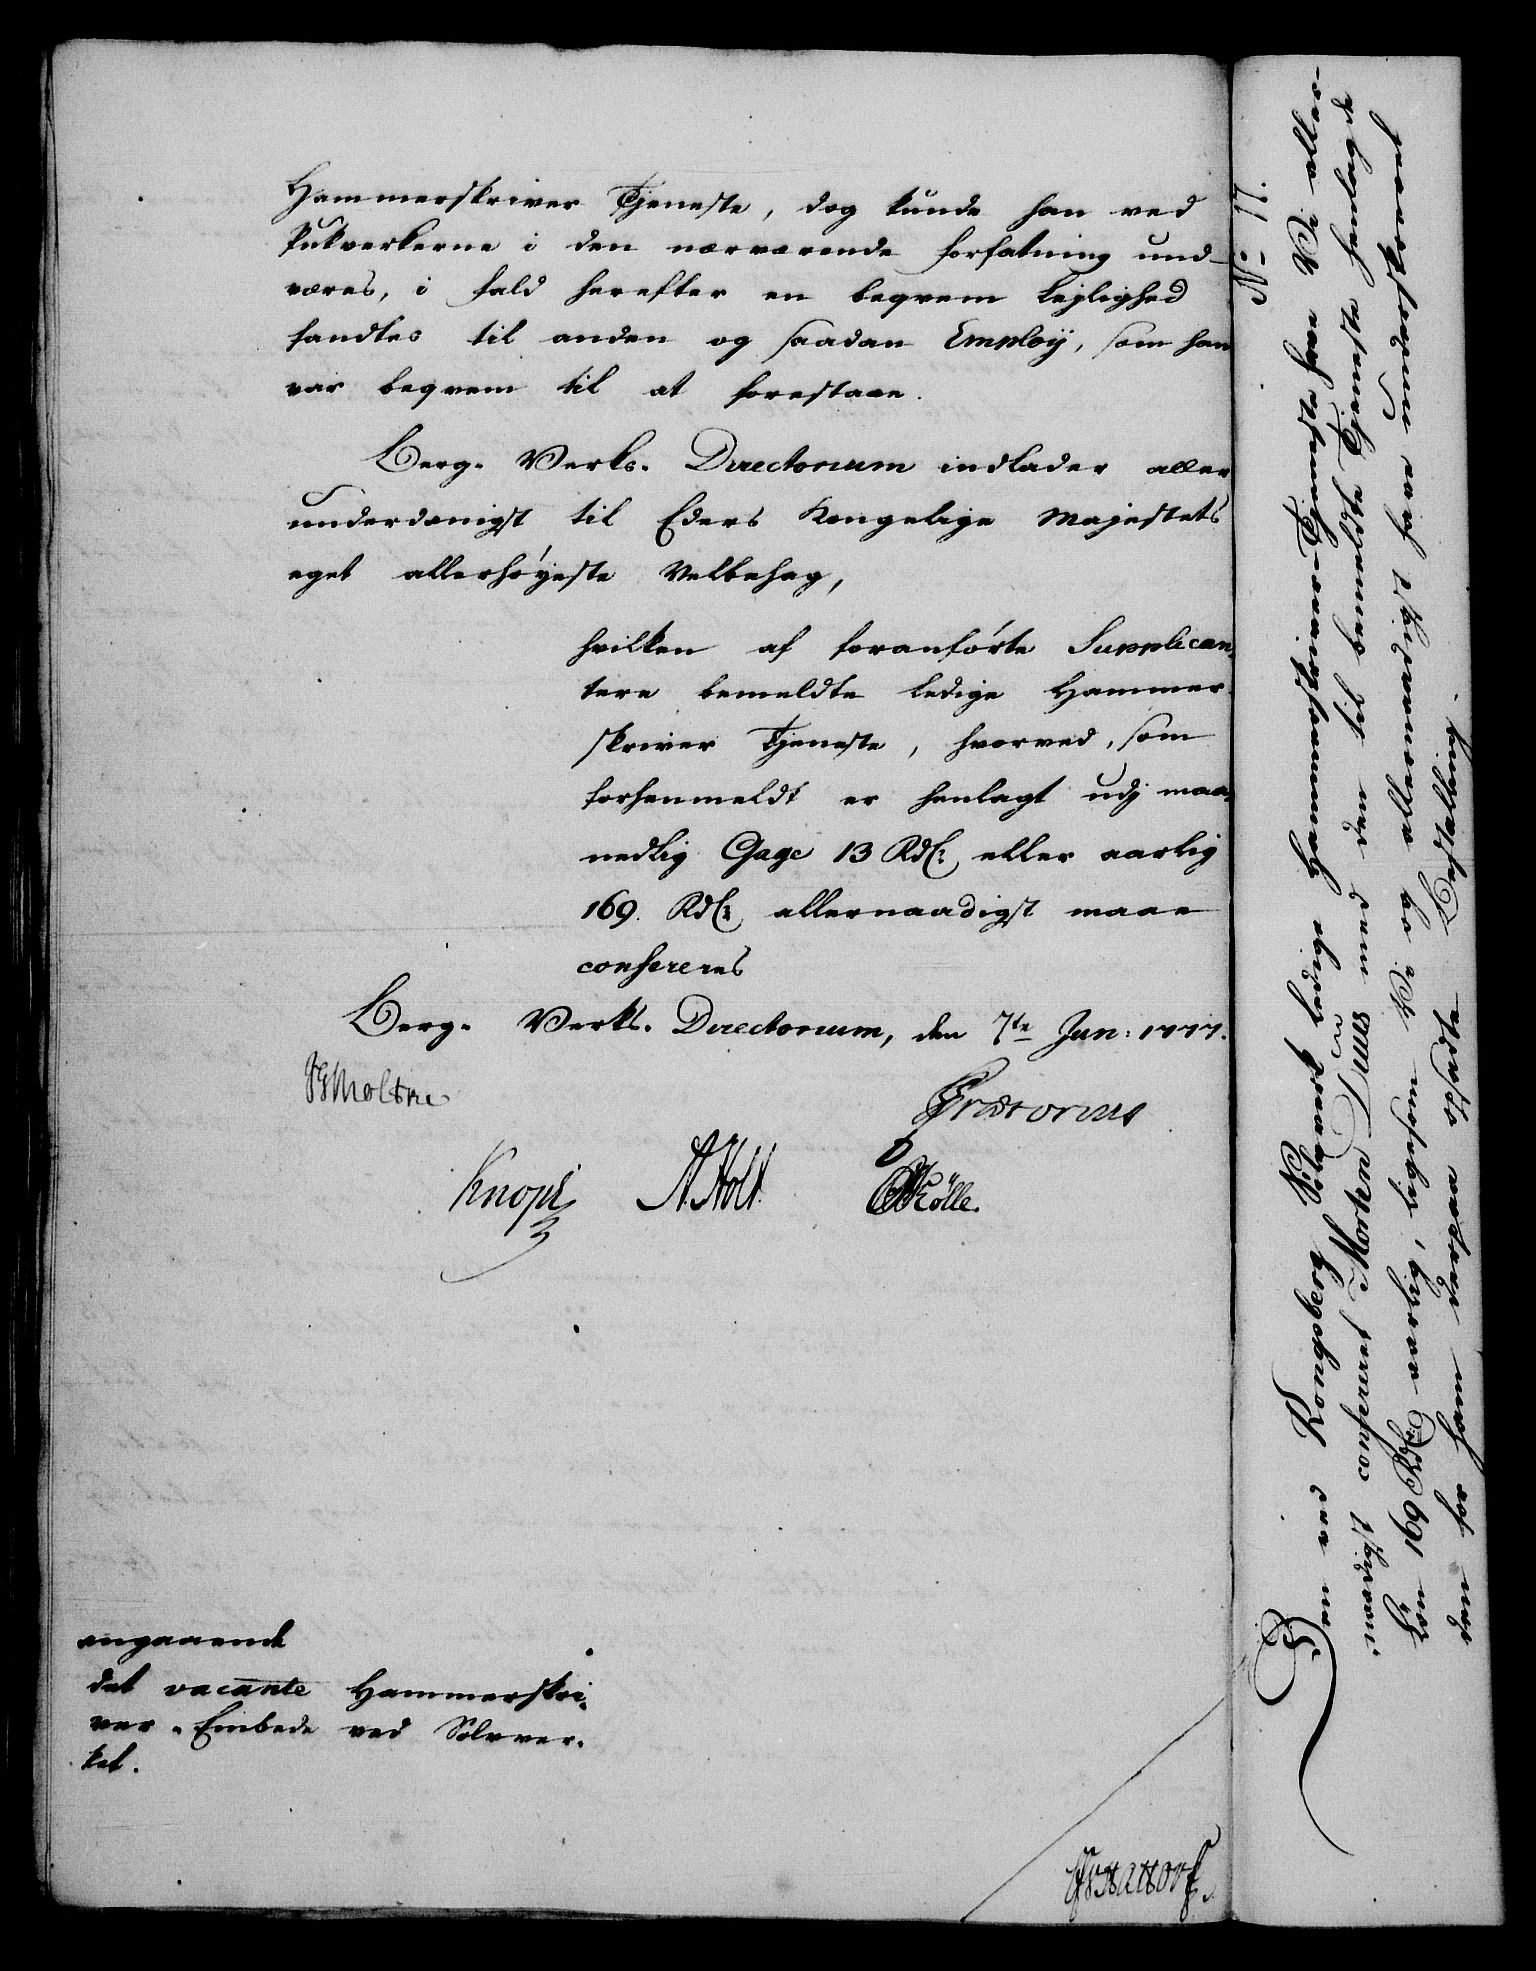 Hammerskriver Tjeneste, dog kunde han ved
Pukverkerne i den nærværende Forfatning und-
væres, i fald herefter en beqvem Lejlighed
fandtes til anden og saadan Employ, som han
var beqvem til at forestaae.
Berg- Verks- Directorium indlader aller
underdanigst til Eders Kongelige Majestets
eget allerhøyeste Velbehag,
hvilken af foranførte Supplican-
tere bemeldte ledige Hammer-
skriver Tjeneste, hvorved, som
forhenmeldt er henlagt udj maa-
nedlig Gage 13 Rdlr eller aarlig
169. Rdlr, allernaadigst maae
confereres
Berg- Verks- Directorium, den 7te Jun: 1777.
Moltke
Prætorius
Knopf A. Holt. Rölle.
angaaende
det vacante Hammerskri-
ver-Embede ved Sölvver-
ket.
No 17.
Den ved Kongsberg Sölvverk ledige Hammerskriver-Tjeneste have Vi aller-
naadigst confereret Morten Duus med den til bemeldte Tjeneste henlagde
Lön 169 Rdlr aarlig, ligesom Vi og allernaadigst have underskrevet
den for ham derpaa opsadte Bestalling.